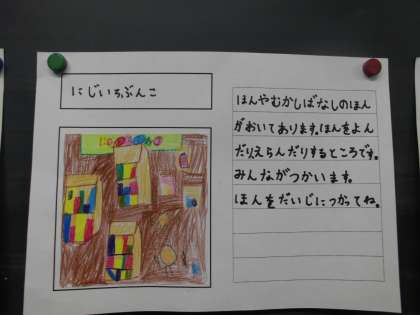 にじいろぶんこ
ほんやむかしばなしのほん
がおいてあります。ほんをよん
だりえらんだりするところです。
みんながつかいます。
ほんをだいじにつかってね。